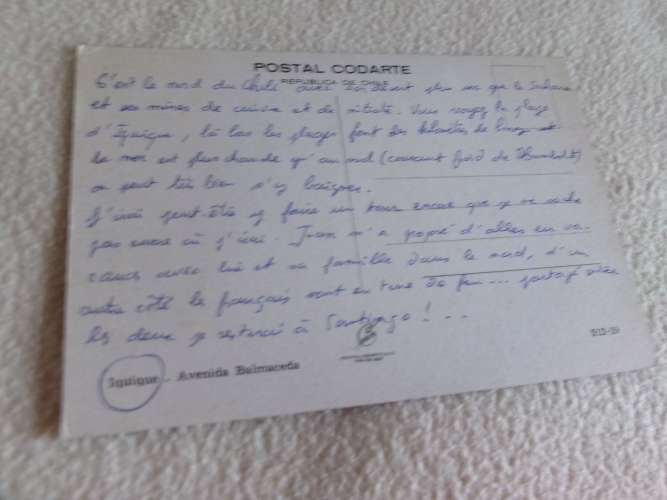 POSTAL CODARTE
REPUBLICA DE CHILE
C'est le nord du Chili avec un désert plus sec que le Sahara
et ses mines de cuivre et de nitrate. Vous voyez la plage
d'Iquique, là bas les plages font des kilomètres de long et
la mer est plus chaude qu'au sud (courant froid de Humboldt)
on peut très bien s'y baigner.
J'irai peut-être y faire un tour encore que je ne sache
pas encore où j'irai. Juan m'a proposé d'aller en va-
cances avec lui et sa famille dans le nord, d'un
autre côté les français vont en terre de feu... partagé entre
les deux je resterai à Santiago! ...
Iquique - Avenida Balmaceda